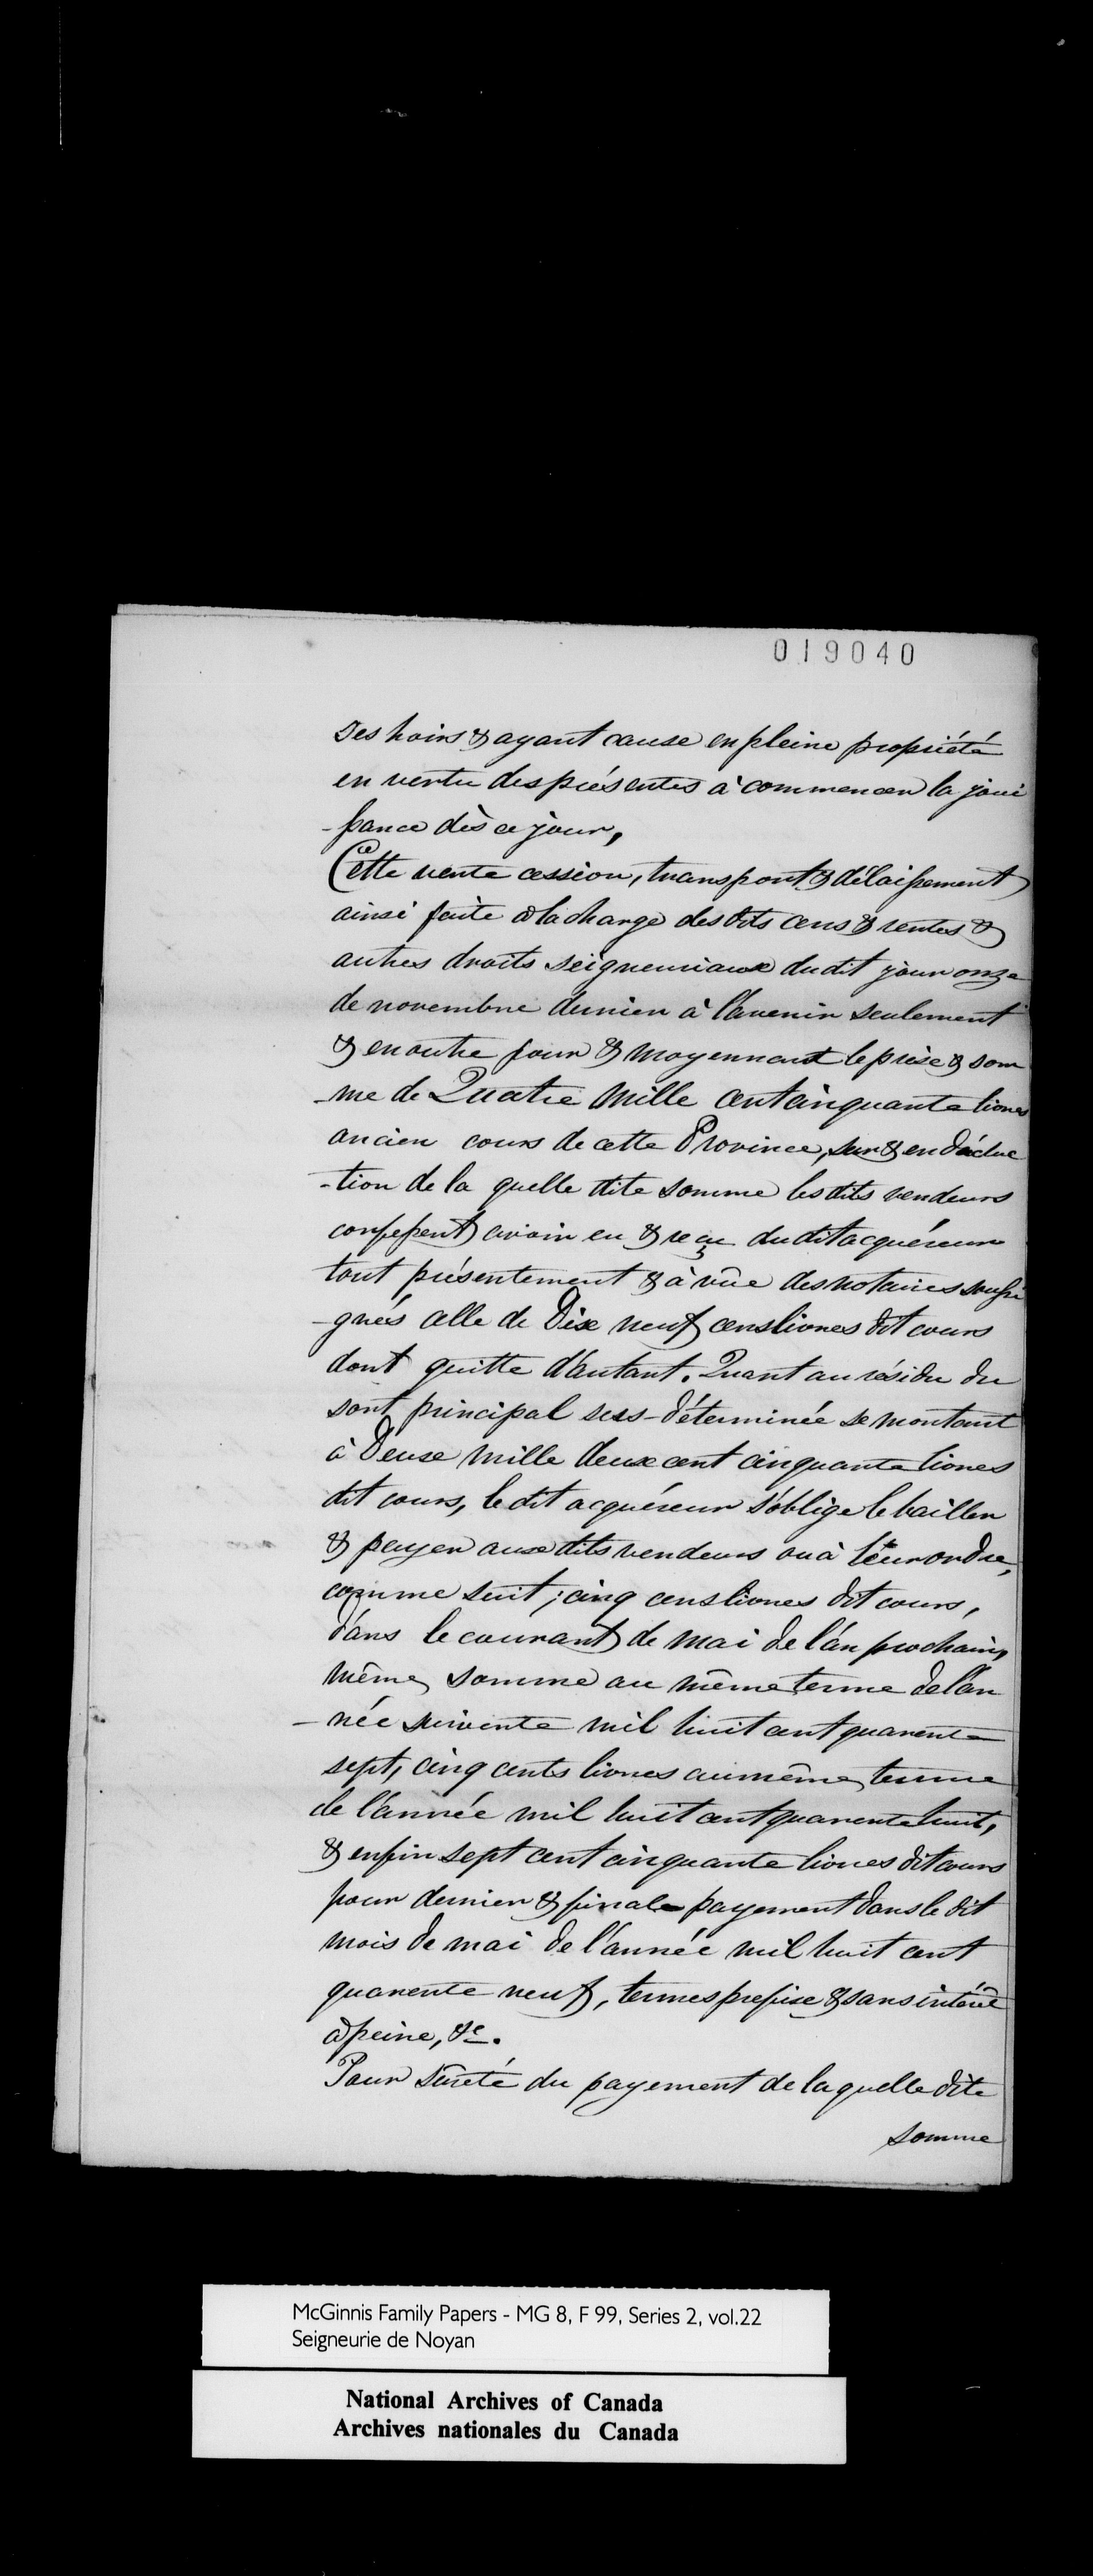 019040
ses hoirs & ayant cause en pleine propriété
en vertu des présentes à commencer la joui
-ssance dès ce jour,
Cette vente cession, transport & délaissement
ainsi faite à la charge desdits cens & rentes &
autres droits seigneuriaux dudit jour onze
de novembre dernier à l'avenir seulement
& en outre pour & moyennant le prix & som
-me de Quatre Mille cent cinquante livres
ancien cours de cette Province, sur & en déduc
-tion de la quelle dite somme les dits vendeurs
confessent avoir eu & reçu du dit acquéreur
tout présentement & à vûe des notaires soussi
-gnés celle de Dix neuf cens livres dit cours
dont quitte d'autant. Quant au résidu du
sort principal sus-déterminée se montant
à Deux mille deux cent cinquante livres
dit cours, le dit acquéreur s'oblige le bailler
& payer aux dits vendeurs ou à leur ordre,
comme suit; cinq cens livres dit cours,
dans le courant de mai de l'an prochain,
même somme au même terme de l'an
-née suivente mil huit cent quarente
sept, cinq cents livres au même terme
de l'année mil huit cent quarente huit,
& enfin sept cent cinquante livres dit cours
pour dernier & final payement dans le dit
mois de mai de l'année mil huit cent
quarente neuf, termes prefixe & sans intérêt
à peine, &c.
Pour sûreté du payement de la quelle dite
somme
McGinnis Family Papers - MG 8, F 99, Series 2, vol.22
Seigneurie de Noyan
National Archives of Canada
Archives nationales du Canada